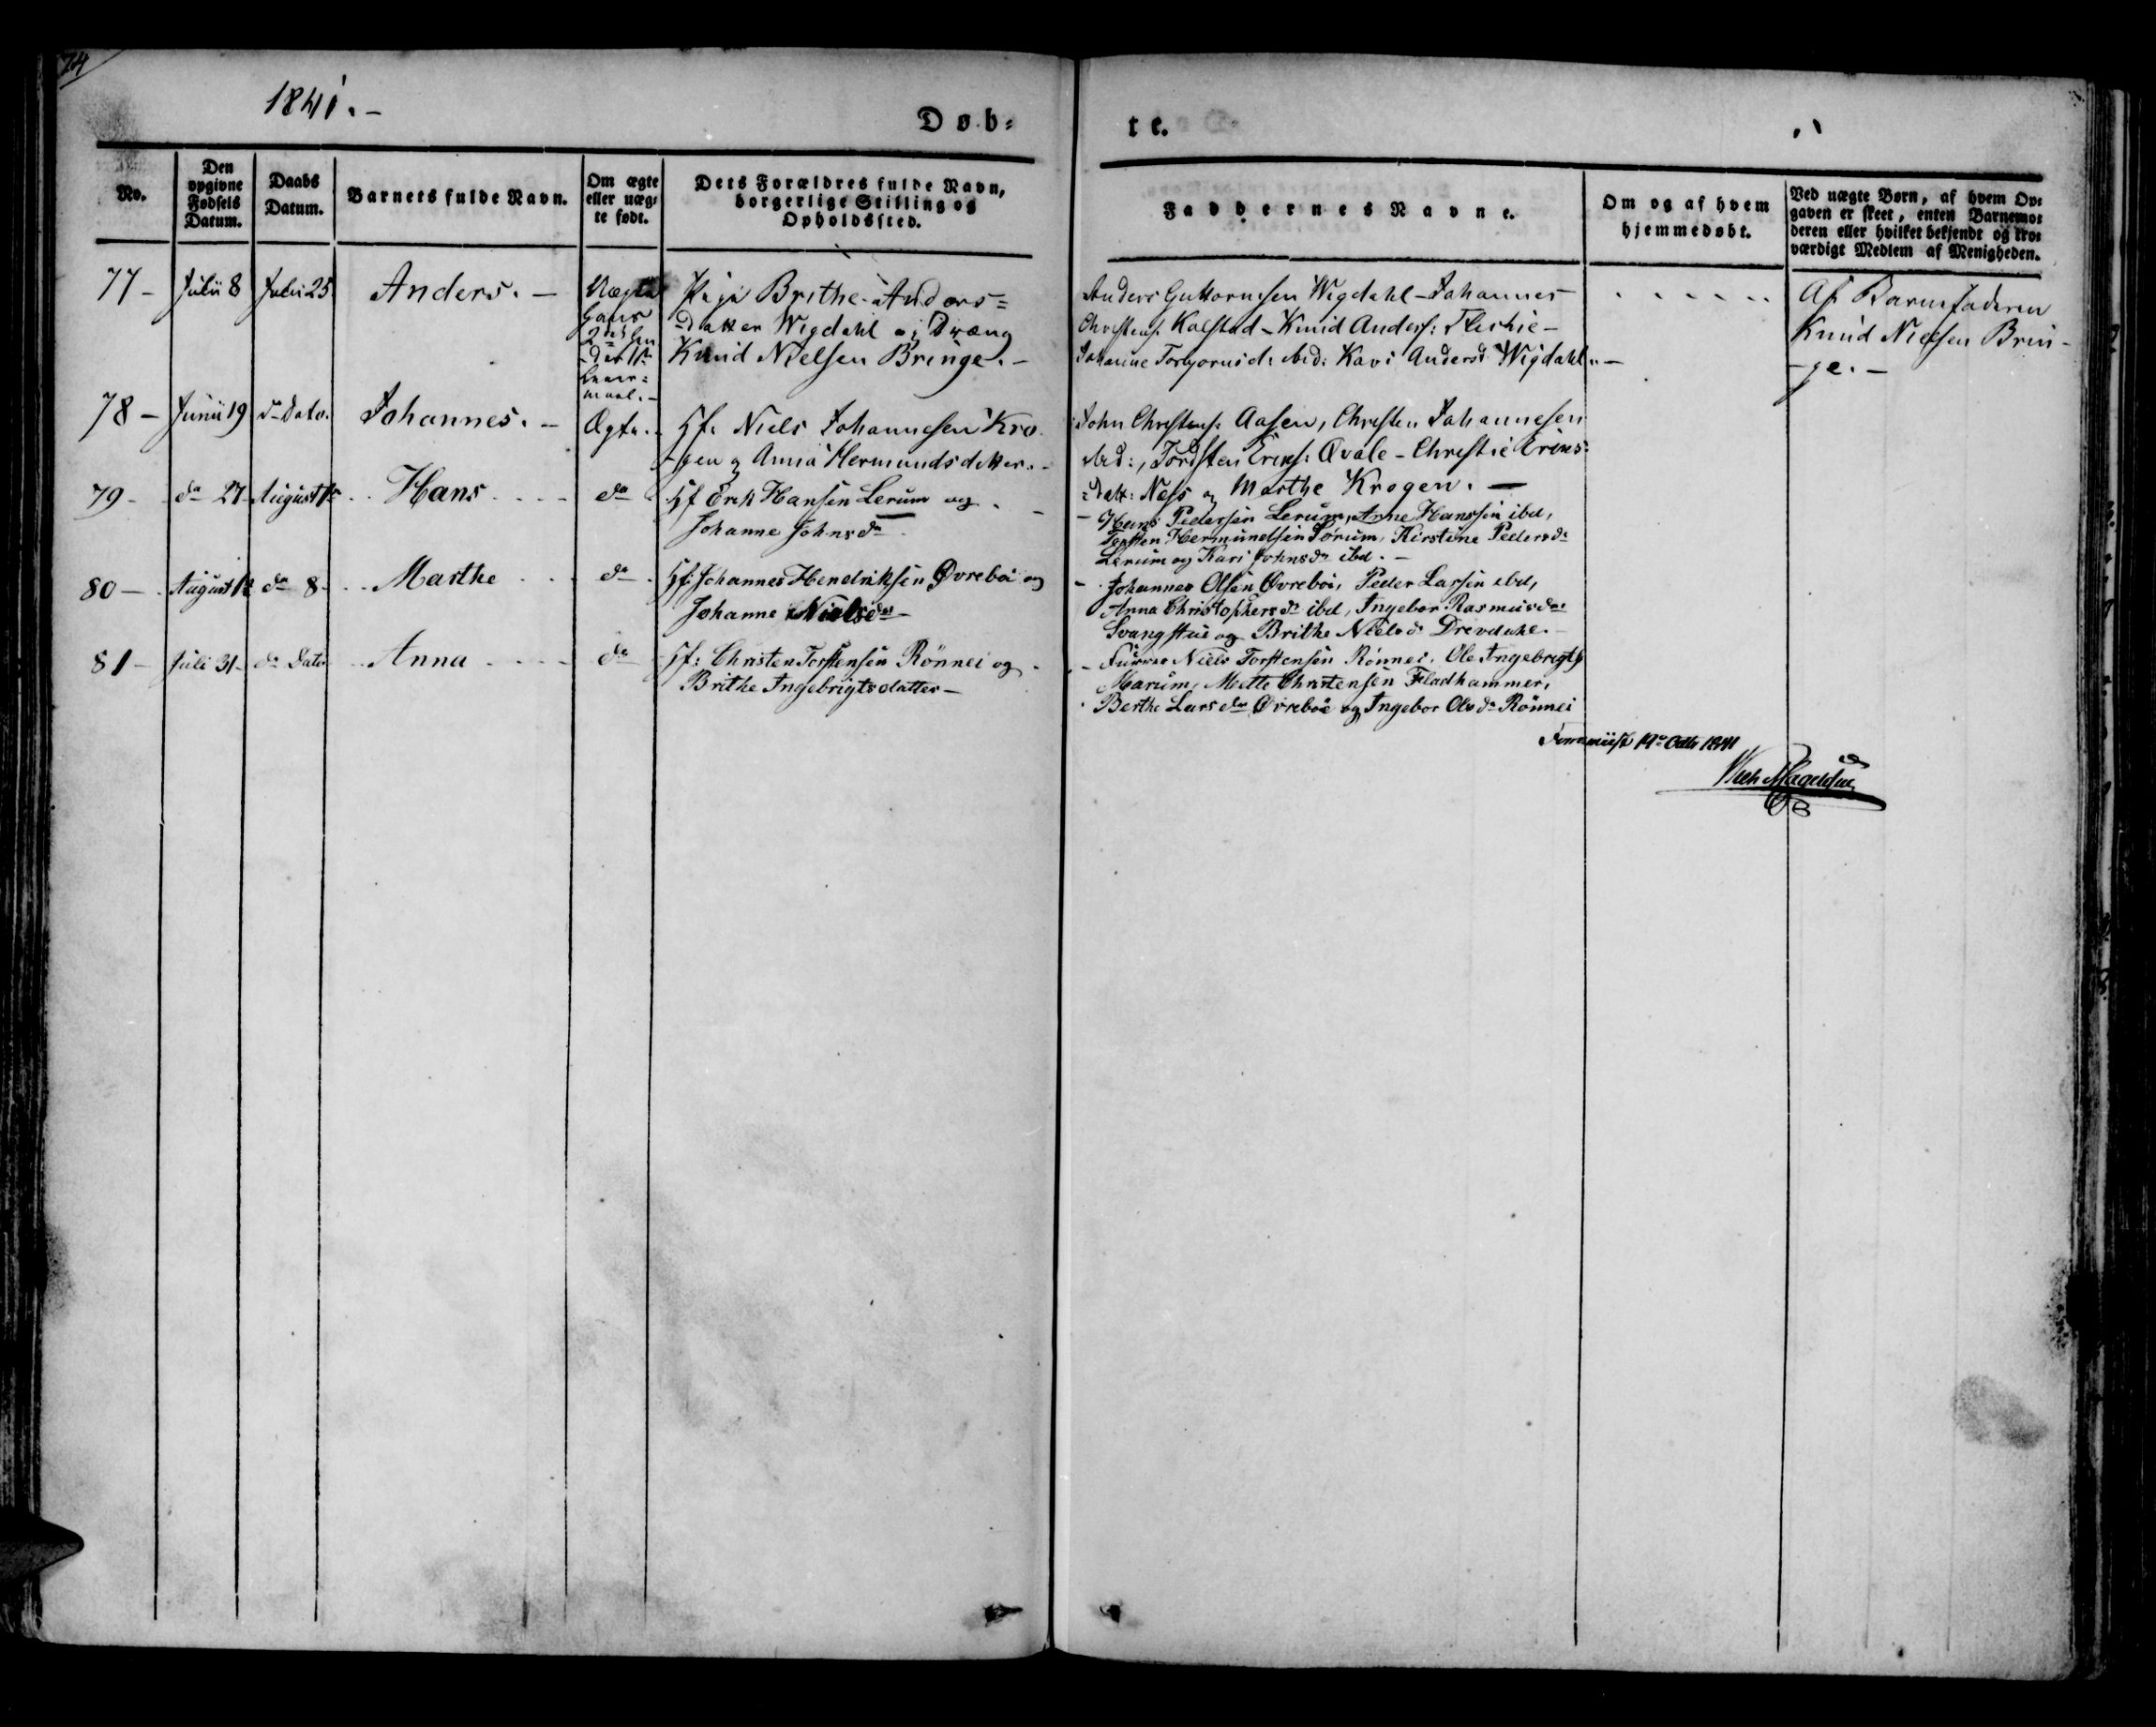 74
1841.-
Døb=
te.
No.
Den opgivne Fødsels Datum.
Daabs Datum.
Barnets fulde Navn.
Om ægte eller uæg= te født.
Dets Forældres fulde Navn, borgerlige Stilling og Opholdssted.
Faddernes Navne.
Om og af hvem hjemmedøbt.
Ved uægte Børn, af hvem Op= gaven er skeet, enten Barnemo= deren eller hvilket bekjendt og tro= værdigt Medlem af Menigheden.
77- Julii 8 Julii 25 Anders. - Uægte Pige Brithe Anders=
Hans
=datter Wigdahl og Dræng
Knud Nielsen Bringe. -
Leier=
maal. -
Anders Guttormsen Wigdahl - Johannes
Christens: Kalstad - Knud Anders: Fleskie -
Johanne Torbjørnsd: ibid: Kari Andersd: Wigdahl. -
Af Barnefaderen
Knud Nielsen Brin-
-ge. -
78- Junii 19 d= Dato. Johannes. - Ægte. Hf. Niels Johannesen Kro
-gen og Anna Hermundsdatter. -
John Christens: Aasen, Christen Johannesen
ibid:, Tordsten Eriks: Qvale - Christie Eriks=
=datt: Næs og Marthe Krogen. -
79- do 27 August 1ste Hans do Hf Erik Hansen Lerum og
Johanne Johnsdr
Hans Pedersen Lerum, Arne Hanssen ibd,
Torsten Hermundsen Sorum, Kirstine Pedersdr
Lerum og Kari Johnsdr ibd. -
80- August 1ste do 8- Marthe do Hf: Johannes Hendriksen Øvrebøi og
Johanne Nielsdr -
Johannes Olsen Øvrebøi, Peder Larsen ibd,
Anna Christophersdr ibd, Ingebor Rasmusdr
Svangstue og Brithe Nielsdr Drevdahl. -
81- Juli 31- do Dato Anna do Hf: Christen Torstensen Rönnei og
Brithe Ingebrigtsdatter -
Niels Torstensen Rönnei, Ole Ingebrigts
Marum, Mette Christensen Fladhammer,
Berthe Larsdr Øvrebøe og Ingebor Olsdr Rönnei
19de Octbr 1841